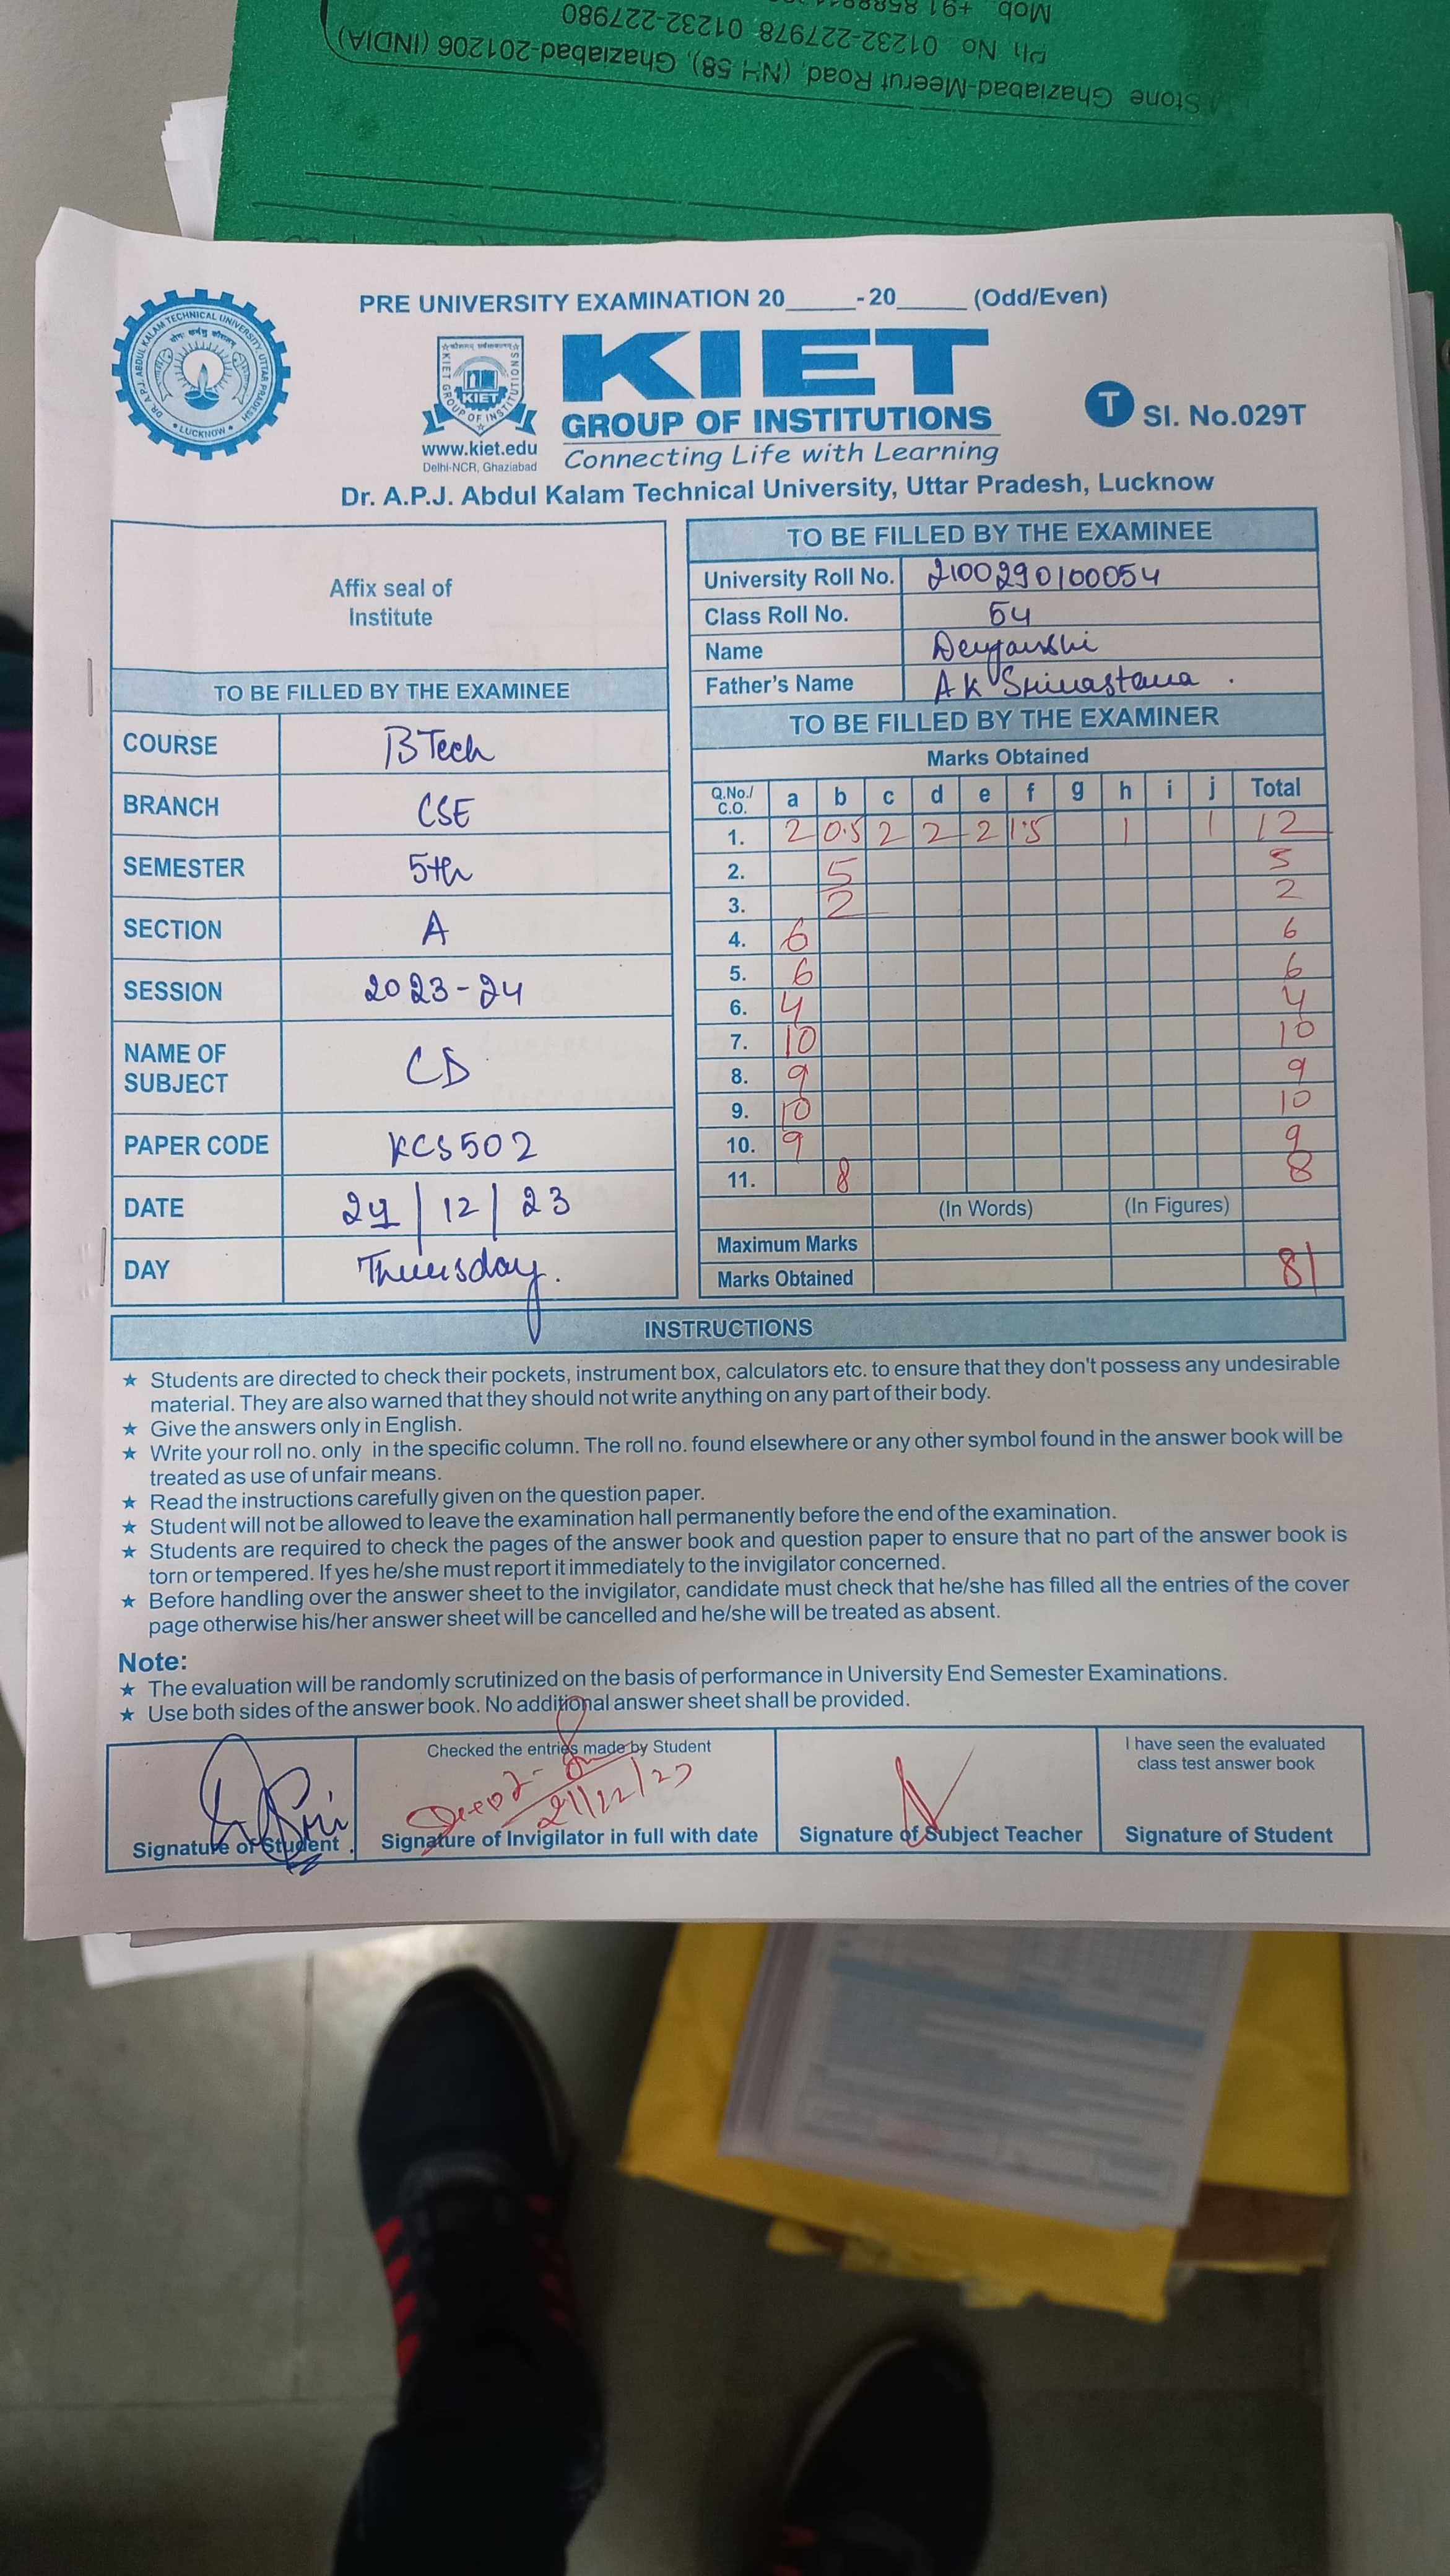 Stone Ghaziabad-Meerut Road, (NH 58), Ghaziabad-201206 (INDIA)
Ph. No. 01232-227978, 01232-227980
Mob. +91
PRE UNIVERSITY EXAMINATION 20_____-20_____ (Odd/Even)
DR. A.P.J. ABDUL KALAM TECHNICAL UNIVERSITY UTTAR PRADESH
LUCKNOW
KIET GROUP OF INSTITUTIONS
KIET
www.kiet.edu
Delhi-NCR, Ghaziabad
KIET
GROUP OF INSTITUTIONS
Connecting Life with Learning
T Sl. No.029T
Dr. A.P.J. Abdul Kalam Technical University, Uttar Pradesh, Lucknow
Affix seal of
Institute
TO BE FILLED BY THE EXAMINEE
COURSE BTech
BRANCH CSE
SEMESTER 5th
SECTION A
SESSION 2023-24
NAME OF
SUBJECT CD
PAPER CODE KCS502
DATE 21/12/23
DAY Thursday.
TO BE FILLED BY THE EXAMINEE
University Roll No. 2100290100054
Class Roll No. 54
Name Devyanshi
Father's Name AK Srivastava .
TO BE FILLED BY THE EXAMINER
Marks Obtained
Q.No./ C.O. a b c d e f g h i j Total
1. 2 0.5 2 2 2 1.5 1 1 12
2. 5 5
3. 2 2
4. 6 6
5. 6 6
6. 4 4
7. 10 10
8. 9 9
9. 10 10
10. 9 9
11. 8 8
(In Words) (In Figures)
Maximum Marks
Marks Obtained 81
INSTRUCTIONS
★ Students are directed to check their pockets, instrument box, calculators etc. to ensure that they don't possess any undesirable
material. They are also warned that they should not write anything on any part of their body.
★ Give the answers only in English.
★ Write your roll no. only in the specific column. The roll no. found elsewhere or any other symbol found in the answer book will be
treated as use of unfair means.
★ Read the instructions carefully given on the question paper.
★ Student will not be allowed to leave the examination hall permanently before the end of the examination.
★ Students are required to check the pages of the answer book and question paper to ensure that no part of the answer book is
torn or tempered. If yes he/she must report it immediately to the invigilator concerned.
★ Before handling over the answer sheet to the invigilator, candidate must check that he/she has filled all the entries of the cover
page otherwise his/her answer sheet will be cancelled and he/she will be treated as absent.
Note:
★ The evaluation will be randomly scrutinized on the basis of performance in University End Semester Examinations.
★ Use both sides of the answer book. No additional answer sheet shall be provided.
Signature of Student
Checked the entries made by Student
21/12/23
Signature of Invigilator in full with date
Signature of Subject Teacher
I have seen the evaluated
class test answer book
Signature of Student